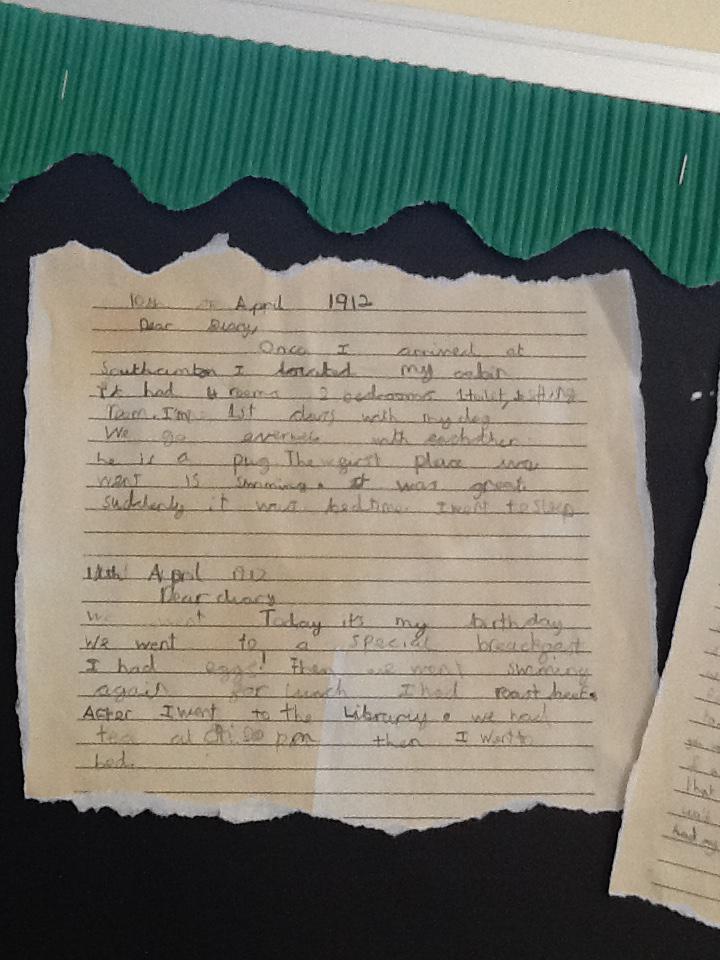 10th April 1912
Dear Diary,
Once I arrived at
Southamton I located my cabin
it had 4 rooms 2 bedrooms 1 toilet,
room. I'm 1st class with my dog
We go with eachother
he is a pug. The place we
went is swmming. it was great.
suddenly it was bedtime. I went to sleep
April 1912
Dear diary
we went Today it's my birthday
We went to a special breackfast
I had eggs! then we went swming
again for lunch I had roast beef.
After I went to the Library. we had
tea at pm then I went to
bed.
that
had my